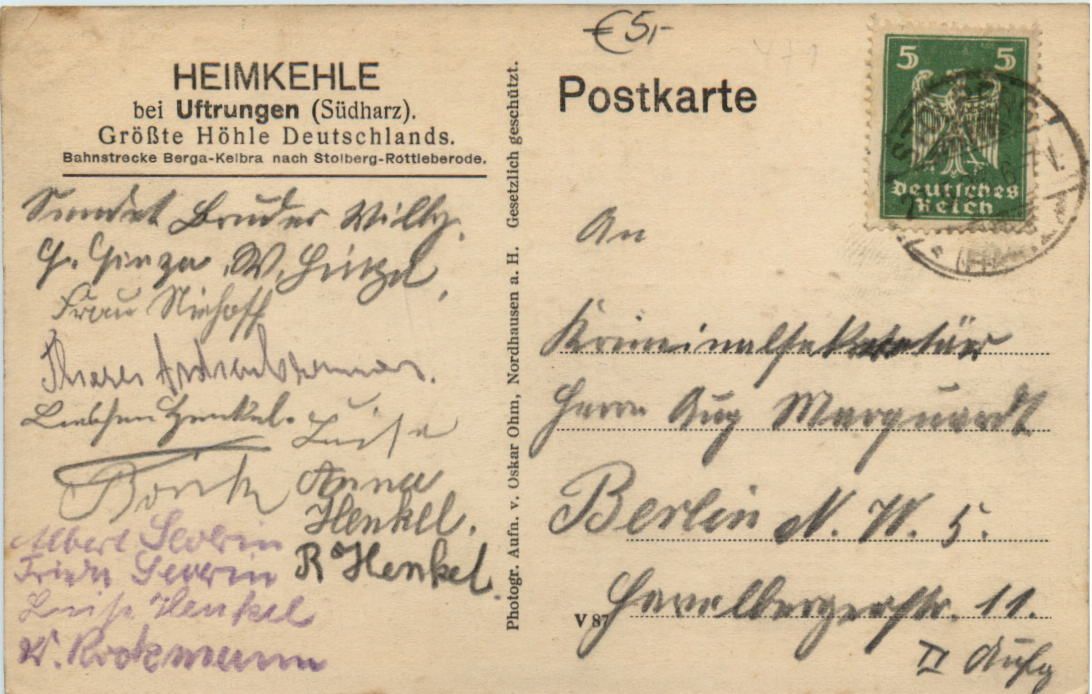 € 5,-
HEIMKEHLE
bei Uftrungen (Südharz).
Größte Höhle Deutschlands.
Bahnstrecke Berga-Kelbra nach Stolberg-Rottleberode.
Sendet Bruder Willy.
Frau Niehoff
Lieschen Henkel.
Luise
Anna
Henkel.
R Henkel.
Albert Severin
Frieda Severin
Luise Henkel
Photogr. Aufn. v. Oskar Ohm, Nordhausen a. H. Gesetzlich geschützt.
Postkarte
5 5
Deutsches
Reich
An
Kriminalsekretär
Herrn Aug Marquardt
Berlin N. W. 5.
V 87
Havelbergerstr. 11.
II Aufg